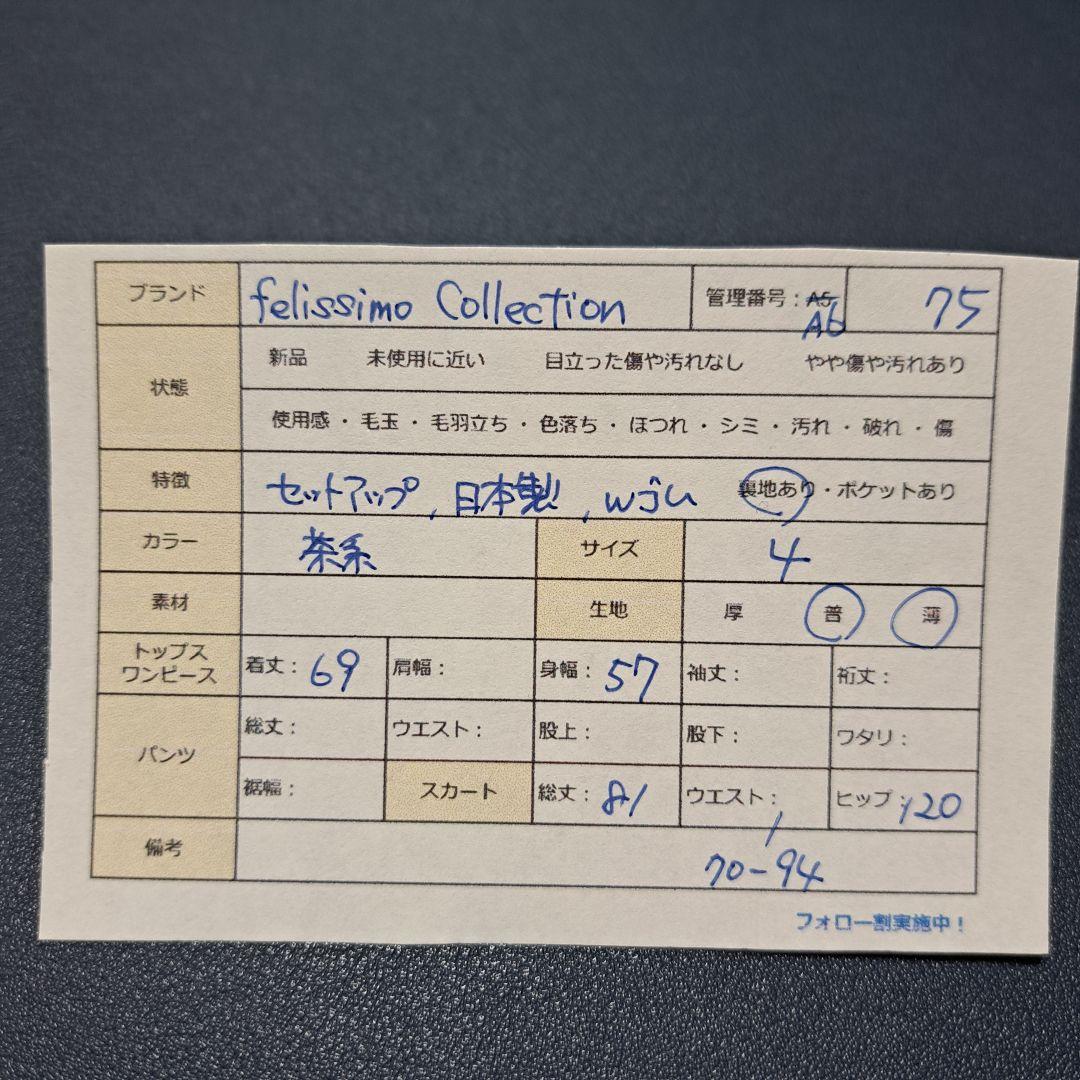 ブランド felissimo Collection 管理番号：A5 A6 75
状態 新品 未使用に近い 目立った傷や汚れなし やや傷や汚れあり
使用感・毛玉・毛羽立ち・色落ち・ほつれ・シミ・汚れ・破れ・傷
特徴 セットアップ, 日本製, 裏地あり・ポケットあり
カラー 茶系 サイズ 4
素材 生地 厚 普 薄
トップス
ワンピース 着丈：69 肩幅： 身幅：57 袖丈： 裄丈：
パンツ 総丈： ウエスト： 股上： 股下： ワタリ：
裾幅： スカート 総丈：81 ウエスト： ヒップ：120
備考 70-94
フォロー割実施中！